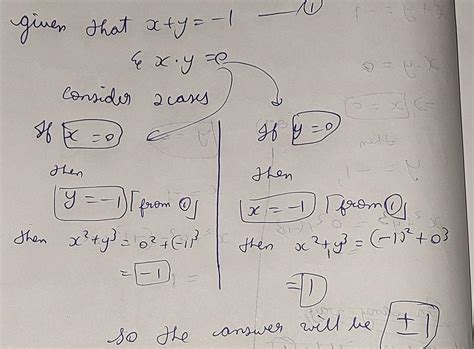 given that x+y = -1 —①
& x·y = 0
Consider 2 cases
If x = 0
then
y = -1 [from ①]
then x²+y³ = 0²+(-1)³
= -1
If y = 0
then
x = -1 [from ①]
then x²+y³ = (-1)²+0³
= 1
so the answer will be ±1